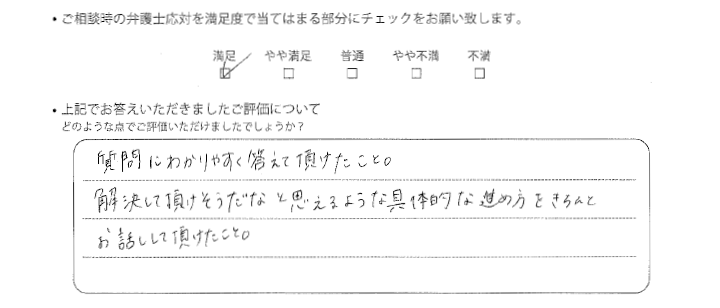 ・ご相談時の弁護士応対を満足度で当てはまる部分にチェックをお願い致します。
満足 やや満足 普通 やや不満 不満
・上記でお答えいただきましたご評価について
どのような点でご評価いただけましたでしょうか？
質問にわかりやすく答えて頂けたこと。
解決して頂けそうだなと思えるような具体的な進め方をきちんと
お話しして頂けたこと。